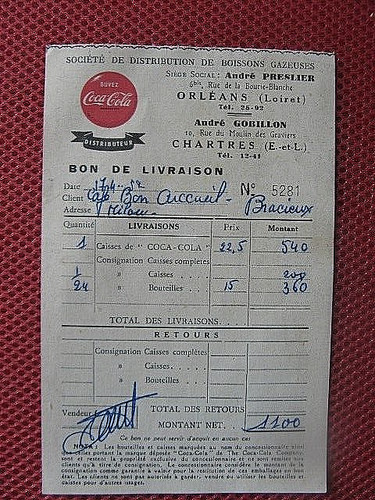 SOCIÉTÉ DE DISTRIBUTION DE BOISSONS GAZEUSES
SIÈGE SOCIAL : André PRESLIER
6bis, Rue de la Bourie-Blanche
ORLÉANS (Loiret)
Tél. 28-92
André GOBILLON
10, Rue du Moulin des Graviers
CHARTRES (E.-et-L.)
Tél. 12-41
BUVEZ
Coca-Cola
DISTRIBUTEUR
BON DE LIVRAISON
Date
N° 5281
Client Café Bon Accueil - Bracieux
Adresse
Quantité LIVRAISONS Prix Montant
1 Caisses de " COCA-COLA " 22,5 540
Consignation Caisses complètes
1 » Caisses. . . 200
24 » Bouteilles . . 15 360
TOTAL DES LIVRAISONS. . . .
RETOURS
Consignation Caisses complètes
» Caisses. . . . .
» Bouteilles . . .
Vendeur TOTAL DES RETOURS
MONTANT NET. . . 1100
Ce bon ne peut servir d'acquit en aucun cas
NOTA : Les bouteilles et caisses marquées au nom du concessionnaire ainsi
que celles portant la marque déposée "Coca-Cola" de The Coca-Cola Company,
sont et restent la propriété exclusive du concessionnaire et ne sont remises aux
clients qu'à titre de consignation. Le concessionnaire considère le montant de la
consignation comme garantie à valoir pour la restitution de ces emballages en bon
état. Les clients ne sont pas autorisés à garder, vendre ou utiliser les bouteilles et
caisses pour d'autres usages.